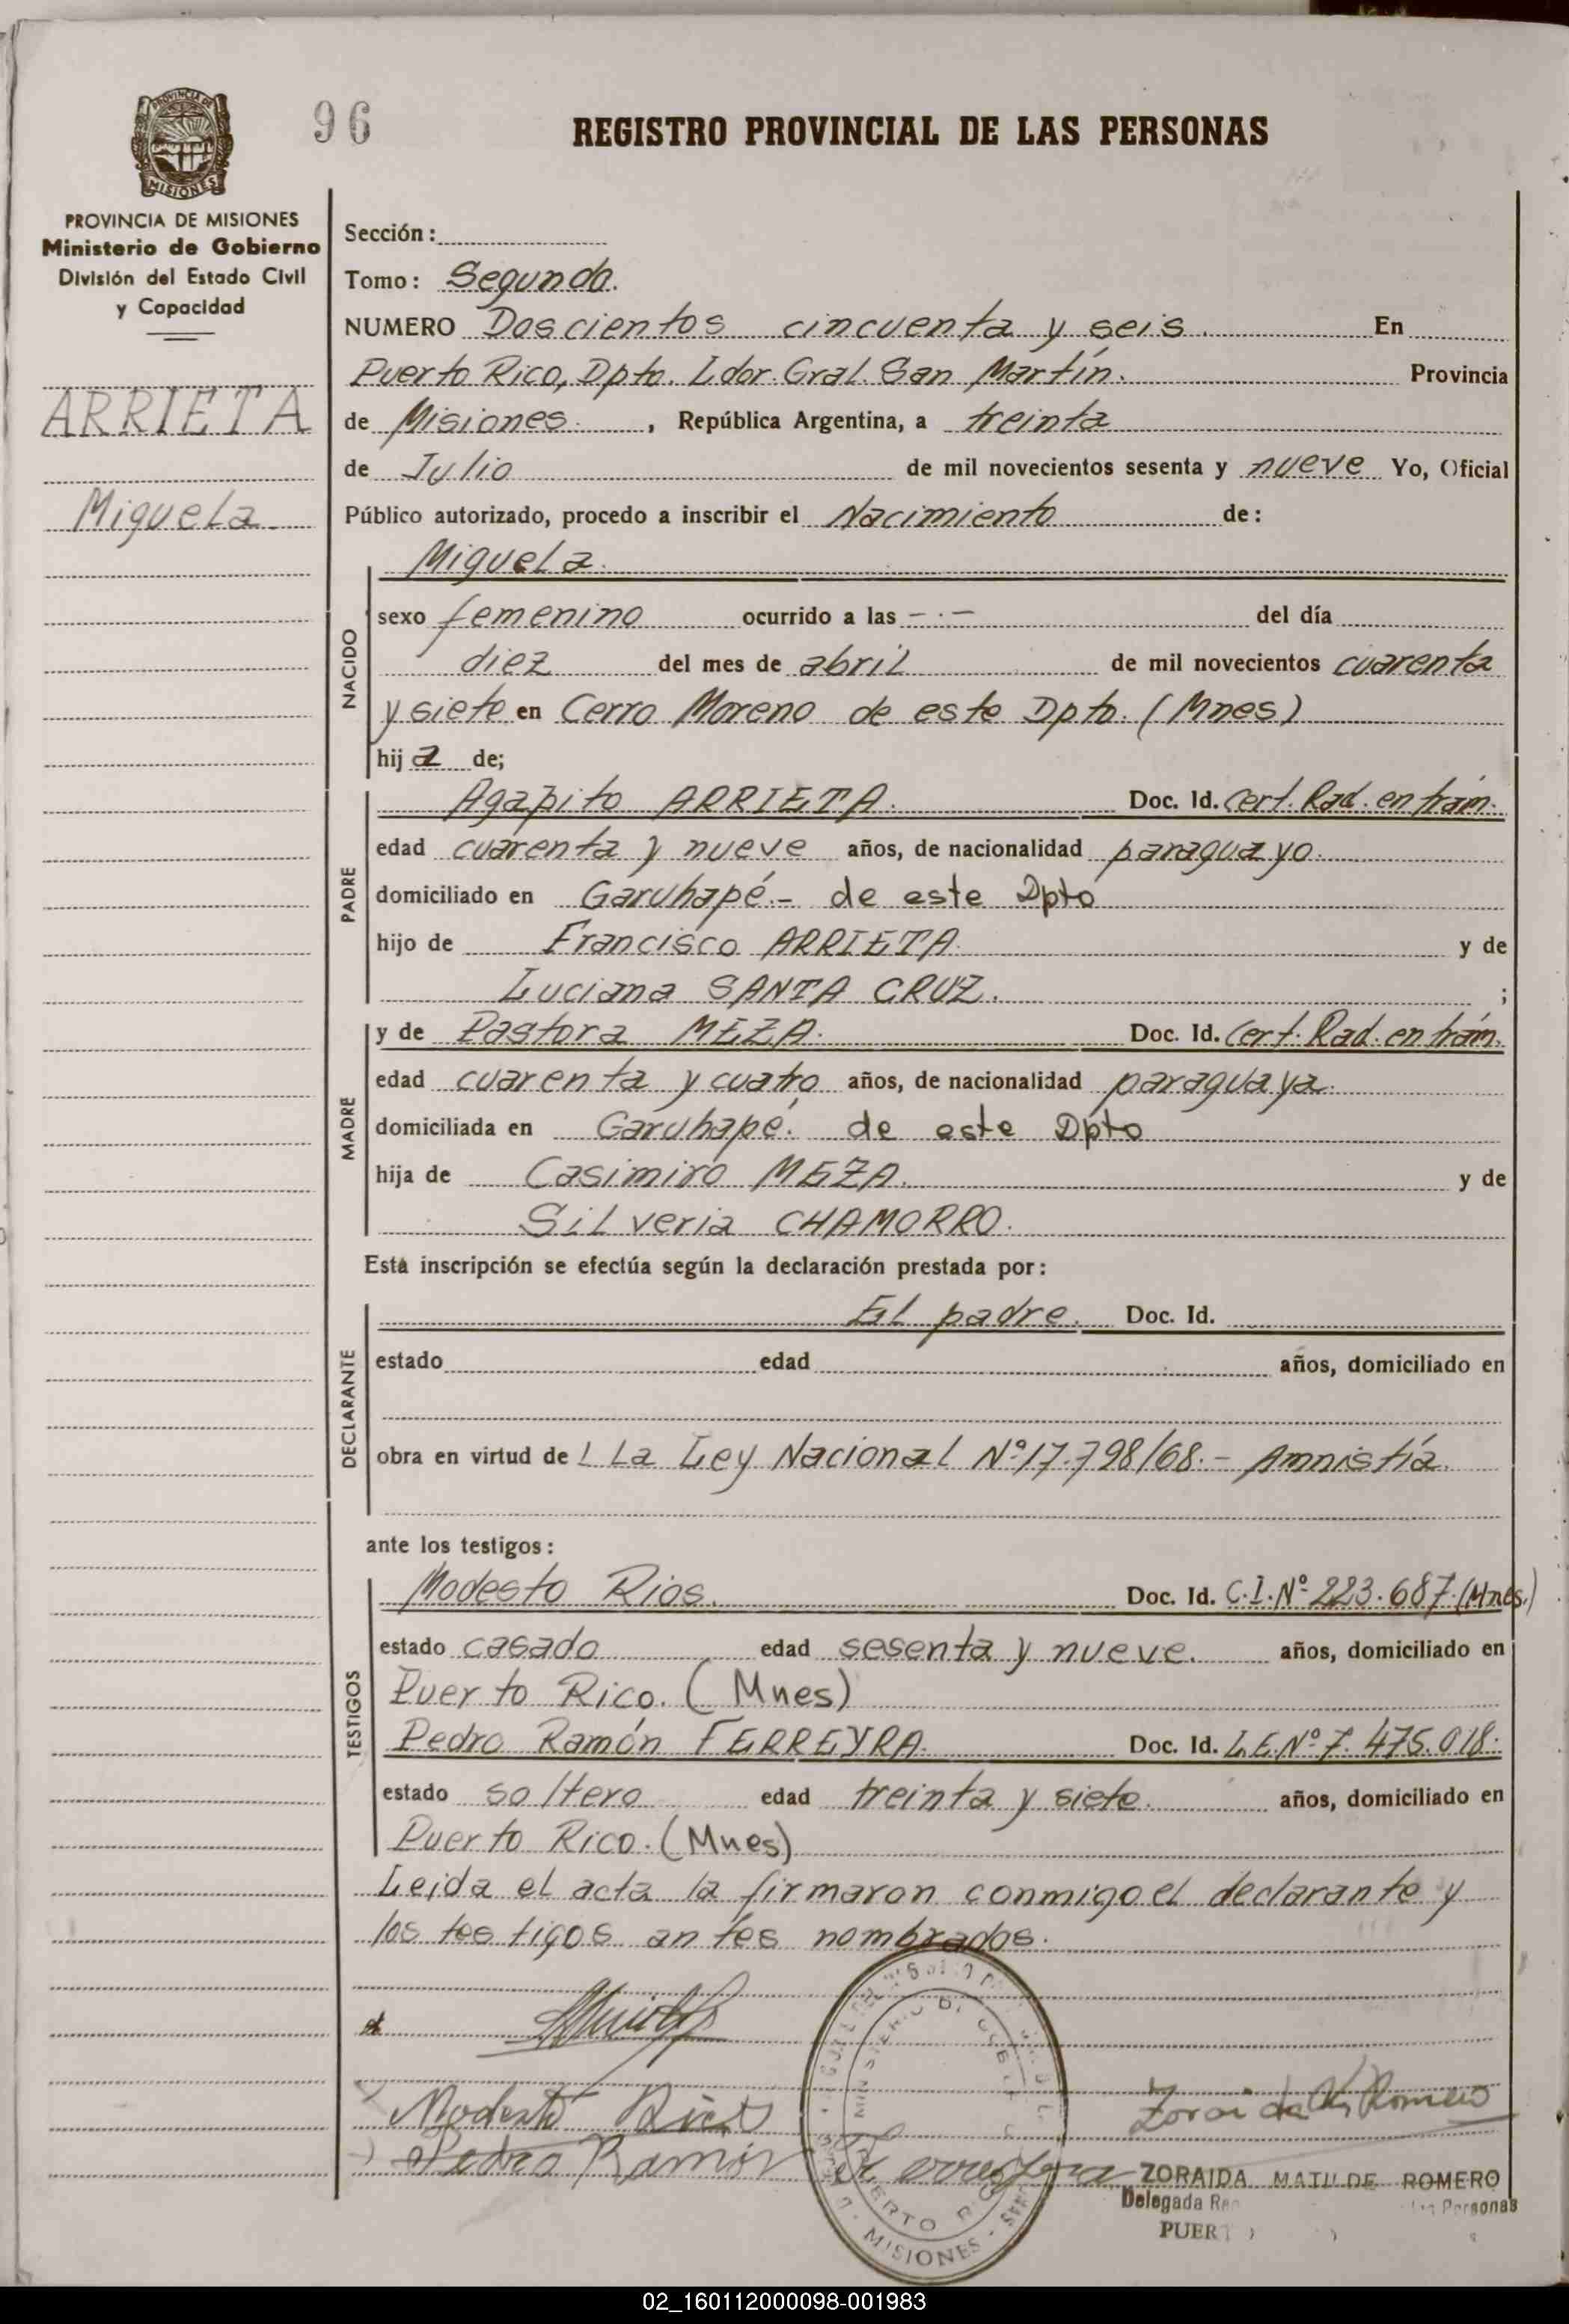 96
REGISTRO PROVINCIAL DE LAS PERSONAS
PROVINCIA DE MISIONES
Ministerio de Gobierno
División del Estado Civil
y Capacidad
ARRIETA
Miguela
Sección:
Tomo: Segundo.
NUMERO Doscientos cincuenta y seis. En
Puerto Rico, Dpto. Ldor. Gral. San Martín. Provincia
de Misiones. , República Argentina, a treinta
de Julio de mil novecientos sesenta y nueve Yo, Oficial
Público autorizado, procedo a inscribir el Nacimiento de:
Miguela.
NACIDO
sexo femenino ocurrido a las -.- del día
diez del mes de abril de mil novecientos cuarenta
y siete en Cerro Moreno de este Dpto. (Mnes)
hija de;
PADRE
Agapito ARRIETA. Doc. Id. Cert. Rad. en trám.
edad cuarenta y nueve años, de nacionalidad paraguayo.
domiciliado en Garuhapé.- de este Dpto
hijo de Francisco ARRIETA. y de
Luciana SANTA CRUZ. ;
MADRE
y de Pastora MEZA. Doc. Id. Cert. Rad. en trám.
edad cuarenta y cuatro años, de nacionalidad paraguaya.
domiciliada en Garuhapé. de este Dpto
hija de Casimiro MEZA. y de
Silveria CHAMORRO.
Esta inscripción se efectúa según la declaración prestada por:
DECLARANTE
El padre. Doc. Id.
estado edad años, domiciliado en
obra en virtud de La Ley Nacional Nº 17.798/68.- Amnistía.
ante los testigos:
TESTIGOS
Modesto Rios. Doc. Id. C.I. Nº 223.687.(Mnes.)
estado casado edad sesenta y nueve. años, domiciliado en
Puerto Rico. (Mnes)
Pedro Ramón FERREYRA. Doc. Id. L.E. Nº 7.475.018.
estado soltero edad treinta y siete. años, domiciliado en
Puerto Rico. (Mnes)
Leida el acta la firmaron conmigo el declarante y
los testigos antes nombrados.
Modesto Rios
Zoraida M. Romero
Pedro Ramón Ferreyra
ZORAIDA MATILDE ROMERO
Delegada Personas
PUERTO
MISIONES
02_160112000098-001983